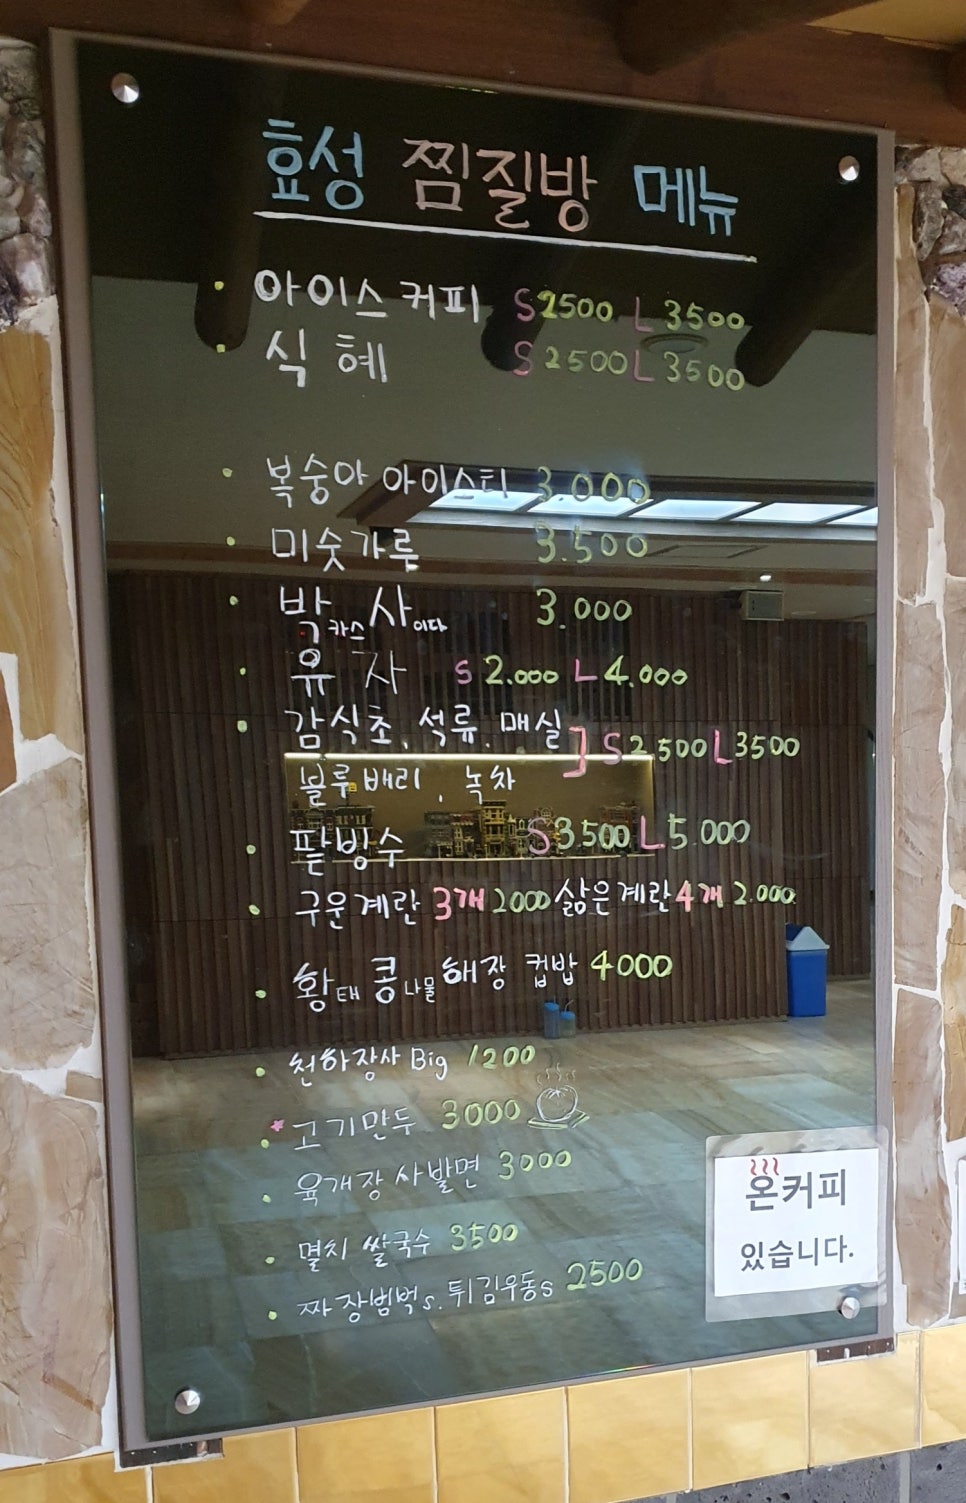 효성 찜질방 메뉴
· 아이스커피 S2500 L3500
· 식혜 S2500 L3500
· 복숭아 아이스티 3.000
· 미숫가루 3.500
· 박카스 사이다 3.000
· 유자 S 2.000 L 4.000
· 감식초, 석류, 매실 ] S2500 L3500
블루베리, 녹차
· 팥빙수 S3.500 L5.000
· 구운계란 3개 2000 삶은계란 4개 2.000
· 황태콩나물해장 컵밥 4000
· 천하장사 Big 1200
· 고기만두 3000
· 육개장 사발면 3000
· 멸치 쌀국수 3500
· 짜장범벅s. 튀김우동s 2500
온커피
있습니다.